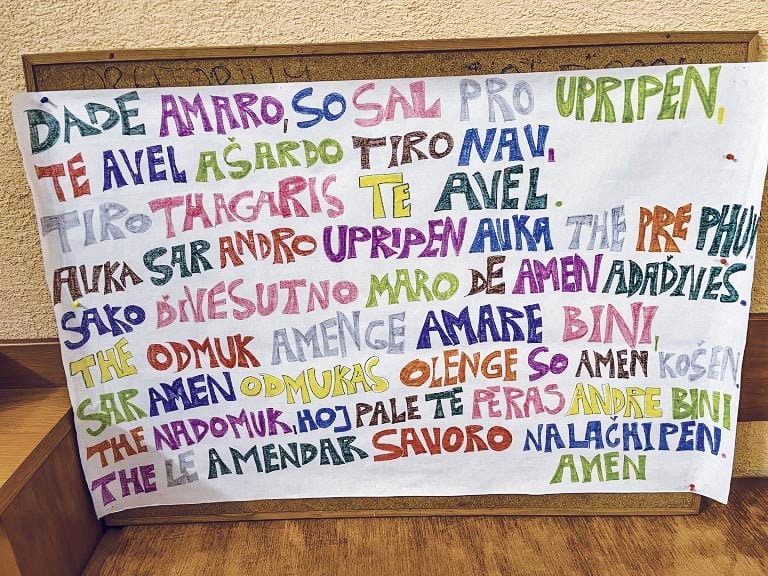 DADE AMARO, SO SAL PRO UPRIPEN,
TE AVEL AŠARDO TIRO NAV,
TIRO THAGARIS TE AVEL.
AUKA SAR ANDRO UPRIPEN AUKA THE PRE PHUV
SAKO ĎIVESUTNO MARO DE AMEN ADAĎIVES
THE ODMUK AMENGE AMARE BINI,
SAR AMEN ODMUKAS OLENGE SO AMEN KOŠEN.
THE NADOMUK, HOJ PALE TE PERAS ANDRE BINI
THE LE AMENDAR SAVORO NALAČHIPEN.
AMEN